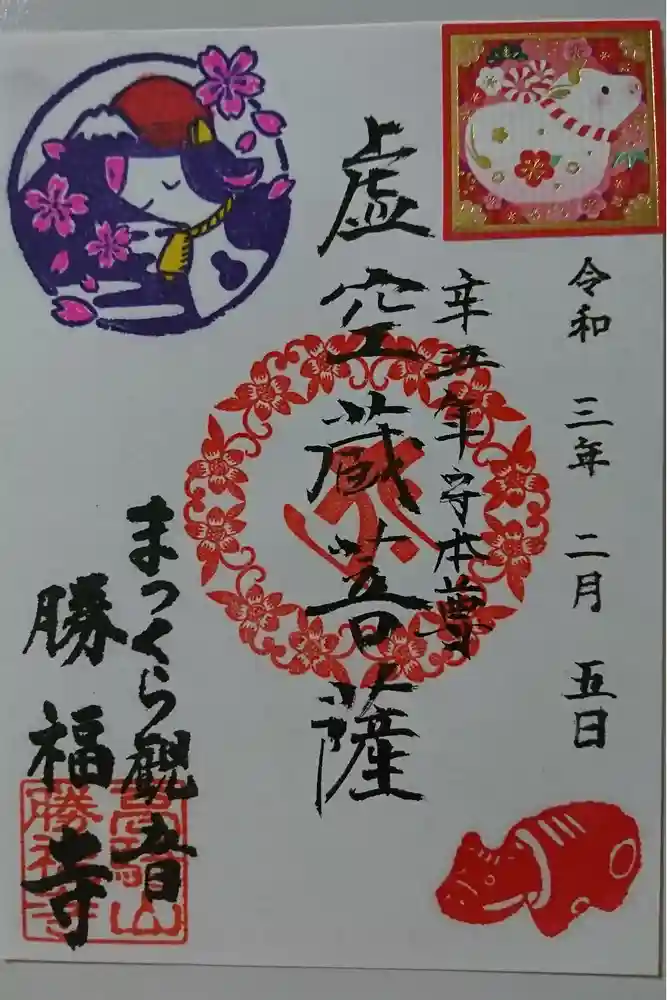 令和 三年 二月 五日
辛丑年守本尊
虚空蔵菩薩
まつくら観音
勝福寺